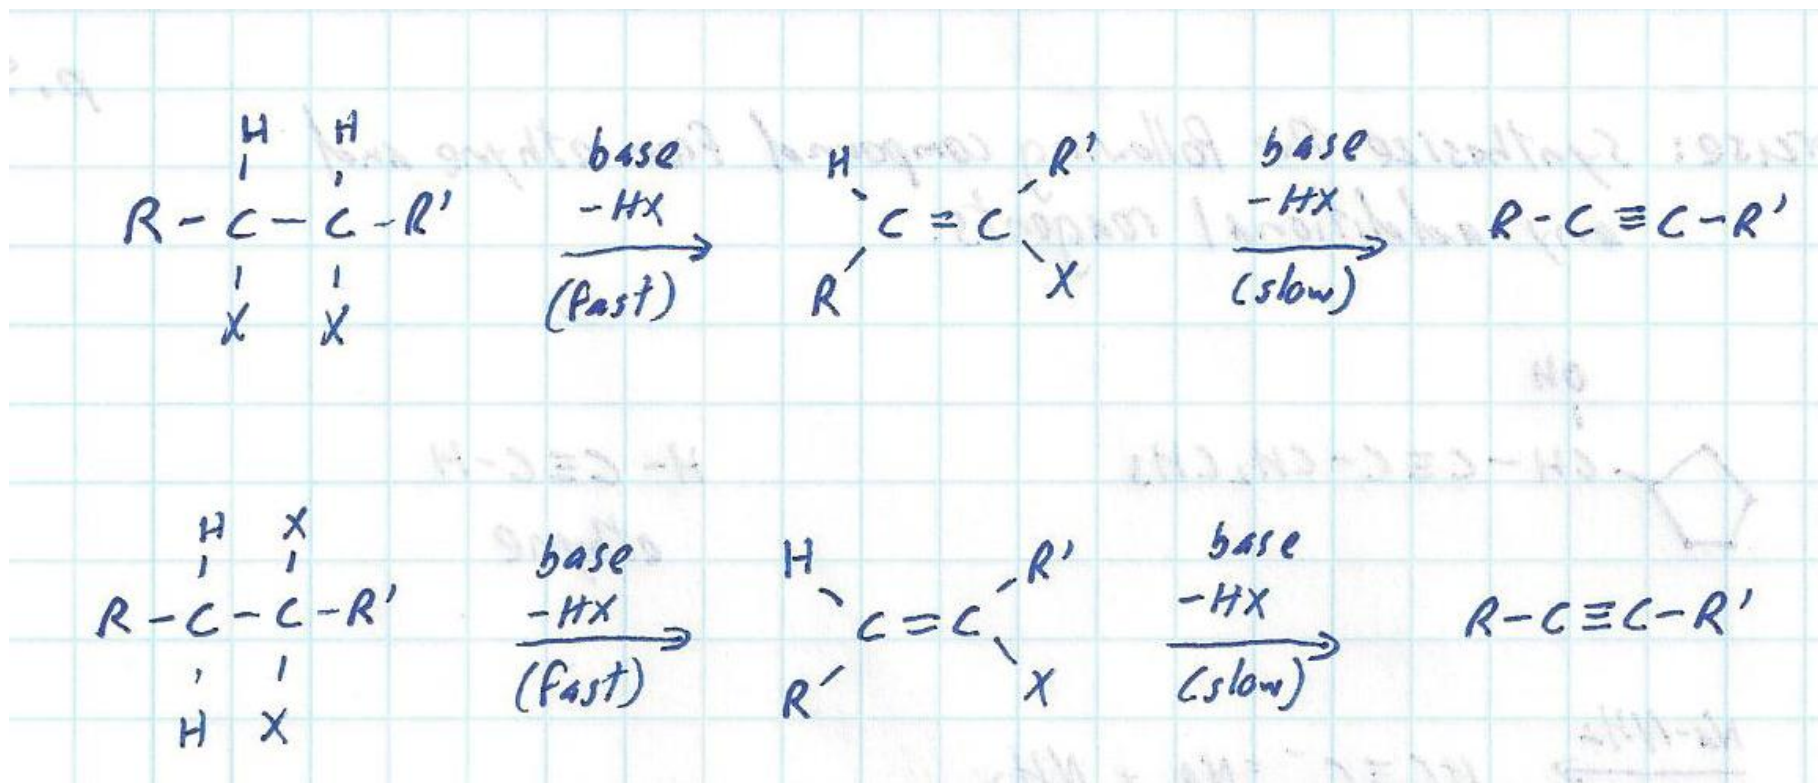 H H
R-C-C-R' base -HX (fast) H R C=C R' X base -HX (slow) R-C≡C-R'
X X
H X
R-C-C-R' base -HX (fast) H R C=C R' X base -HX (slow) R-C≡C-R'
H X